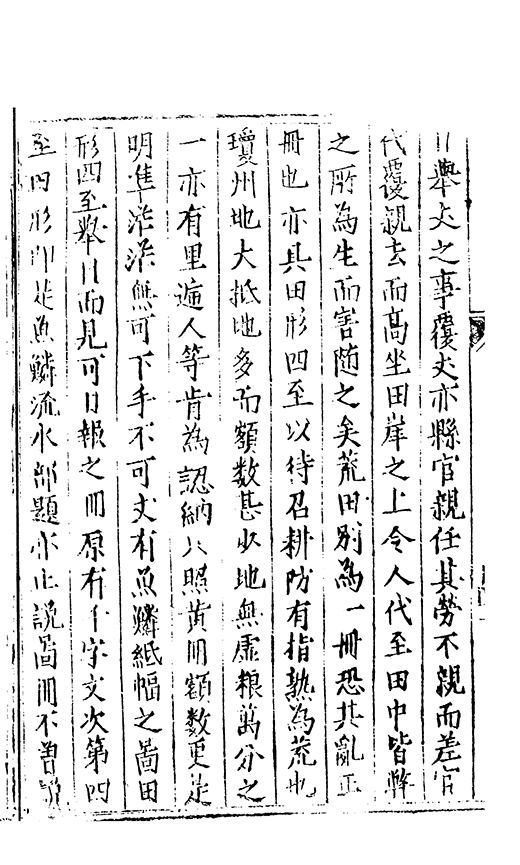 日舉丈之事覆丈亦縣官親任其勞不親而差官
代覆親去而高坐田岸之上令人代至田中皆弊
之所為生而害随之矣荒田別為一冊恐其亂正
冊也亦具田形四至以待召耕防有指熟為荒也
瓊州地大抵地多而額數甚少地無虛粮萬分之
一亦有里逓人等肯為認納只照黄冊額數更是
明隼茫茫無可下手不可丈有魚鱗紙幅之啚田
形四至舉目而見可日報之冊原有千字文次第四
至内形即是魚鱗流水部題亦止説啚冊不曽説